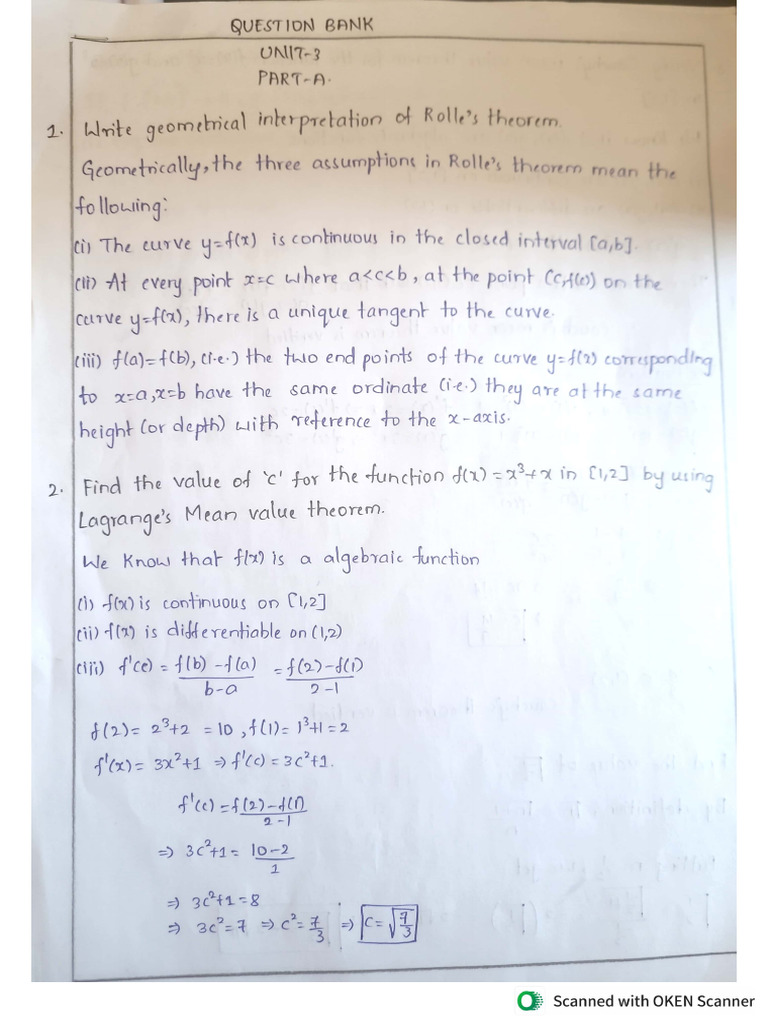 QUESTION BANK
UNIT-3
PART-A.
1. Write geometrical interpretation of Rolle's theorem.
Geometrically, the three assumptions in Rolle's theorem mean the
following:
(i) The curve y=f(x) is continuous in the closed interval [a,b].
(ii) At every point x=c where a<c<b, at the point (c,f(c)) on the
curve y=f(x), there is a unique tangent to the curve.
(iii) f(a)=f(b), (i.e.) the two end points of the curve y=f(x) corresponding
to x=a, x=b have the same ordinate (i.e.) they are at the same
height (or depth) with reference to the x-axis.
2. Find the value of 'c' for the function f(x)=x³+x in [1,2] by using
Lagrange's Mean value theorem.
We Know that f(x) is a algebraic function
(i) f(x) is continuous on [1,2]
(ii) f(x) is differentiable on (1,2)
(iii) f'(c) = f(b)-f(a)/b-a = f(2)-f(1)/2-1
f(2)= 2³+2 =10, f(1)= 1³+1=2
f'(x)= 3x²+1 ⇒ f'(c)=3c²+1.
f'(c) = f(2)-f(1)/2-1
⇒ 3c²+1 = 10-2/1
⇒ 3c²+1=8
⇒ 3c²=7 ⇒ c²=7/3 ⇒ c=√7/3
Scanned with OKEN Scanner